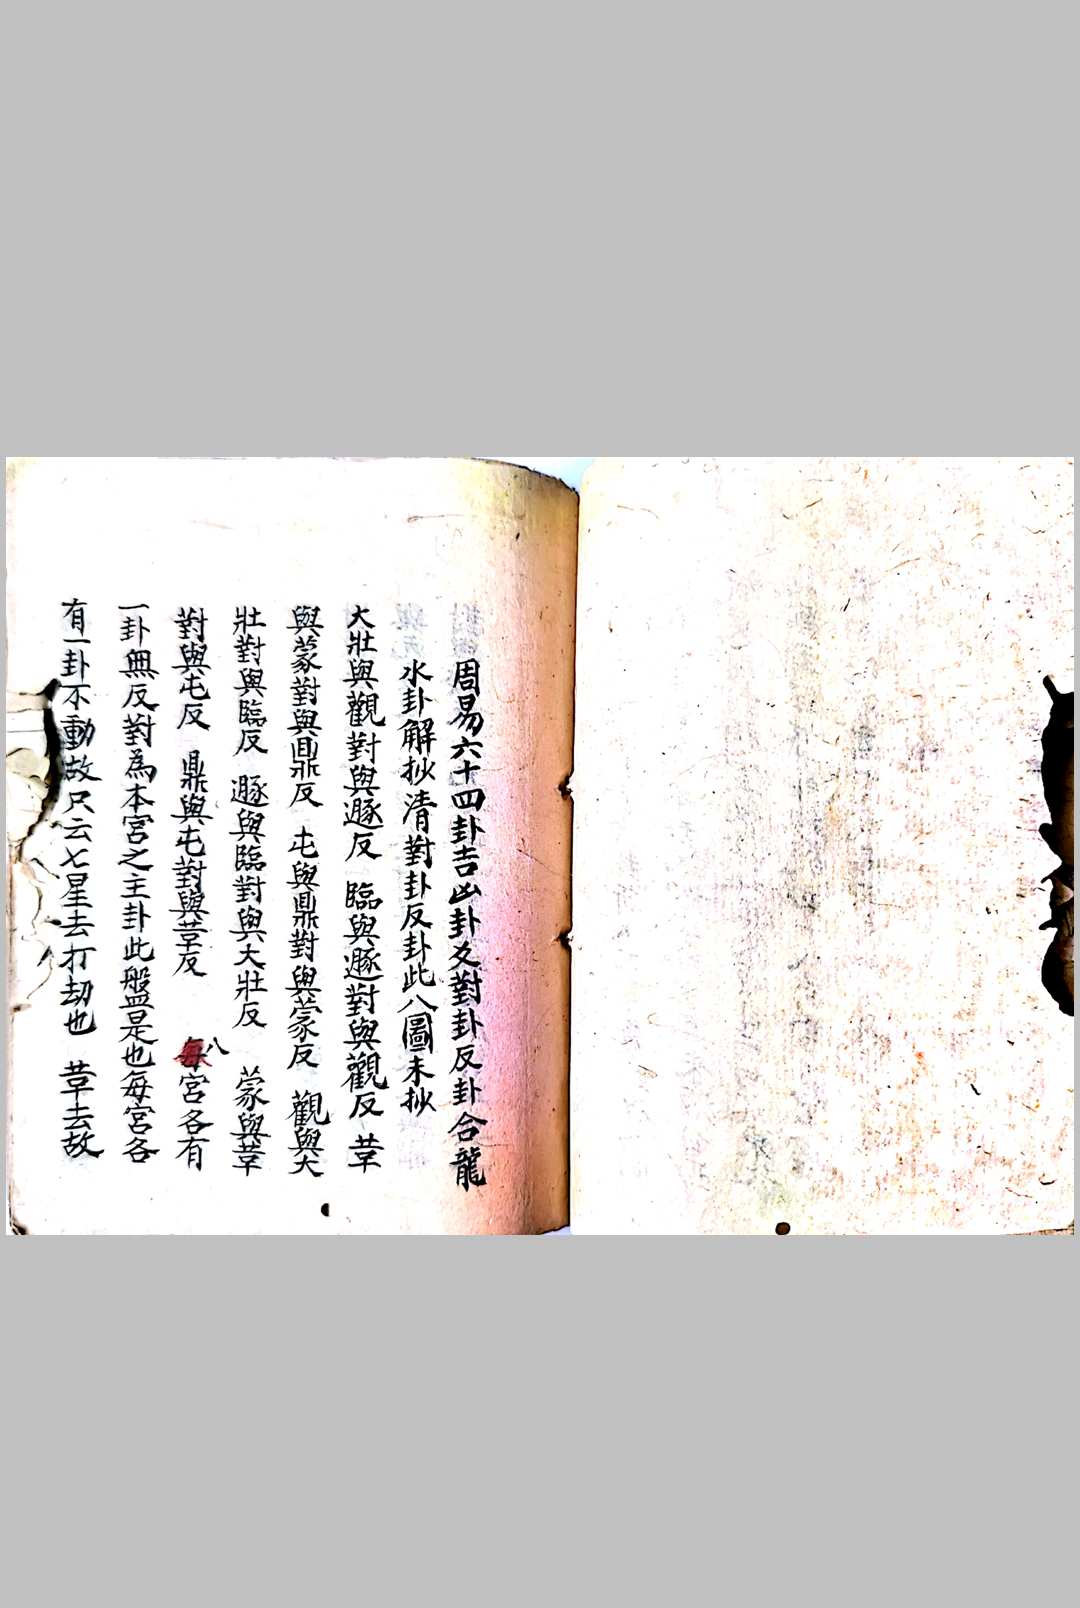 周易六十四卦吉凶卦爻對卦反卦合龍
水卦解抄清對卦反卦此八圖未抄
大壯與觀對與遯反 臨與遯對與觀反 革
與蒙對與鼎反 屯與鼎對與蒙反 觀與大
壯對與臨反 遯與臨對與大壯反 蒙與革
對與屯反 鼎與屯對與革反 八宮各有
一卦無反對為本宮之主卦此盤是也每宮各
有一卦不動故只云七星去打劫也 革去故